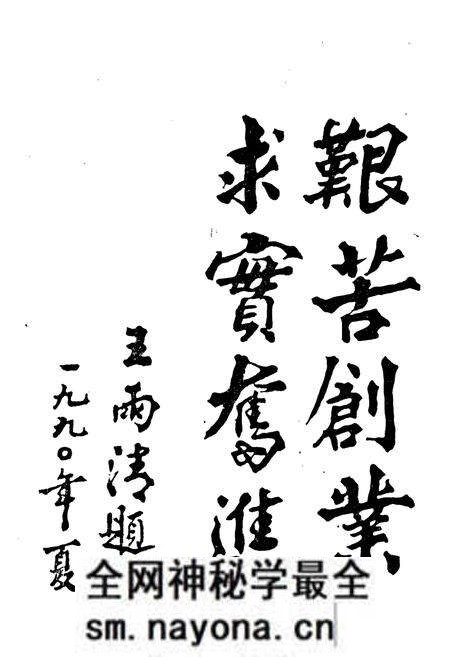 艱苦創業
求實奮進
王雨清題
一九九〇年夏
全网神秘学最全
sm.nayona.cn